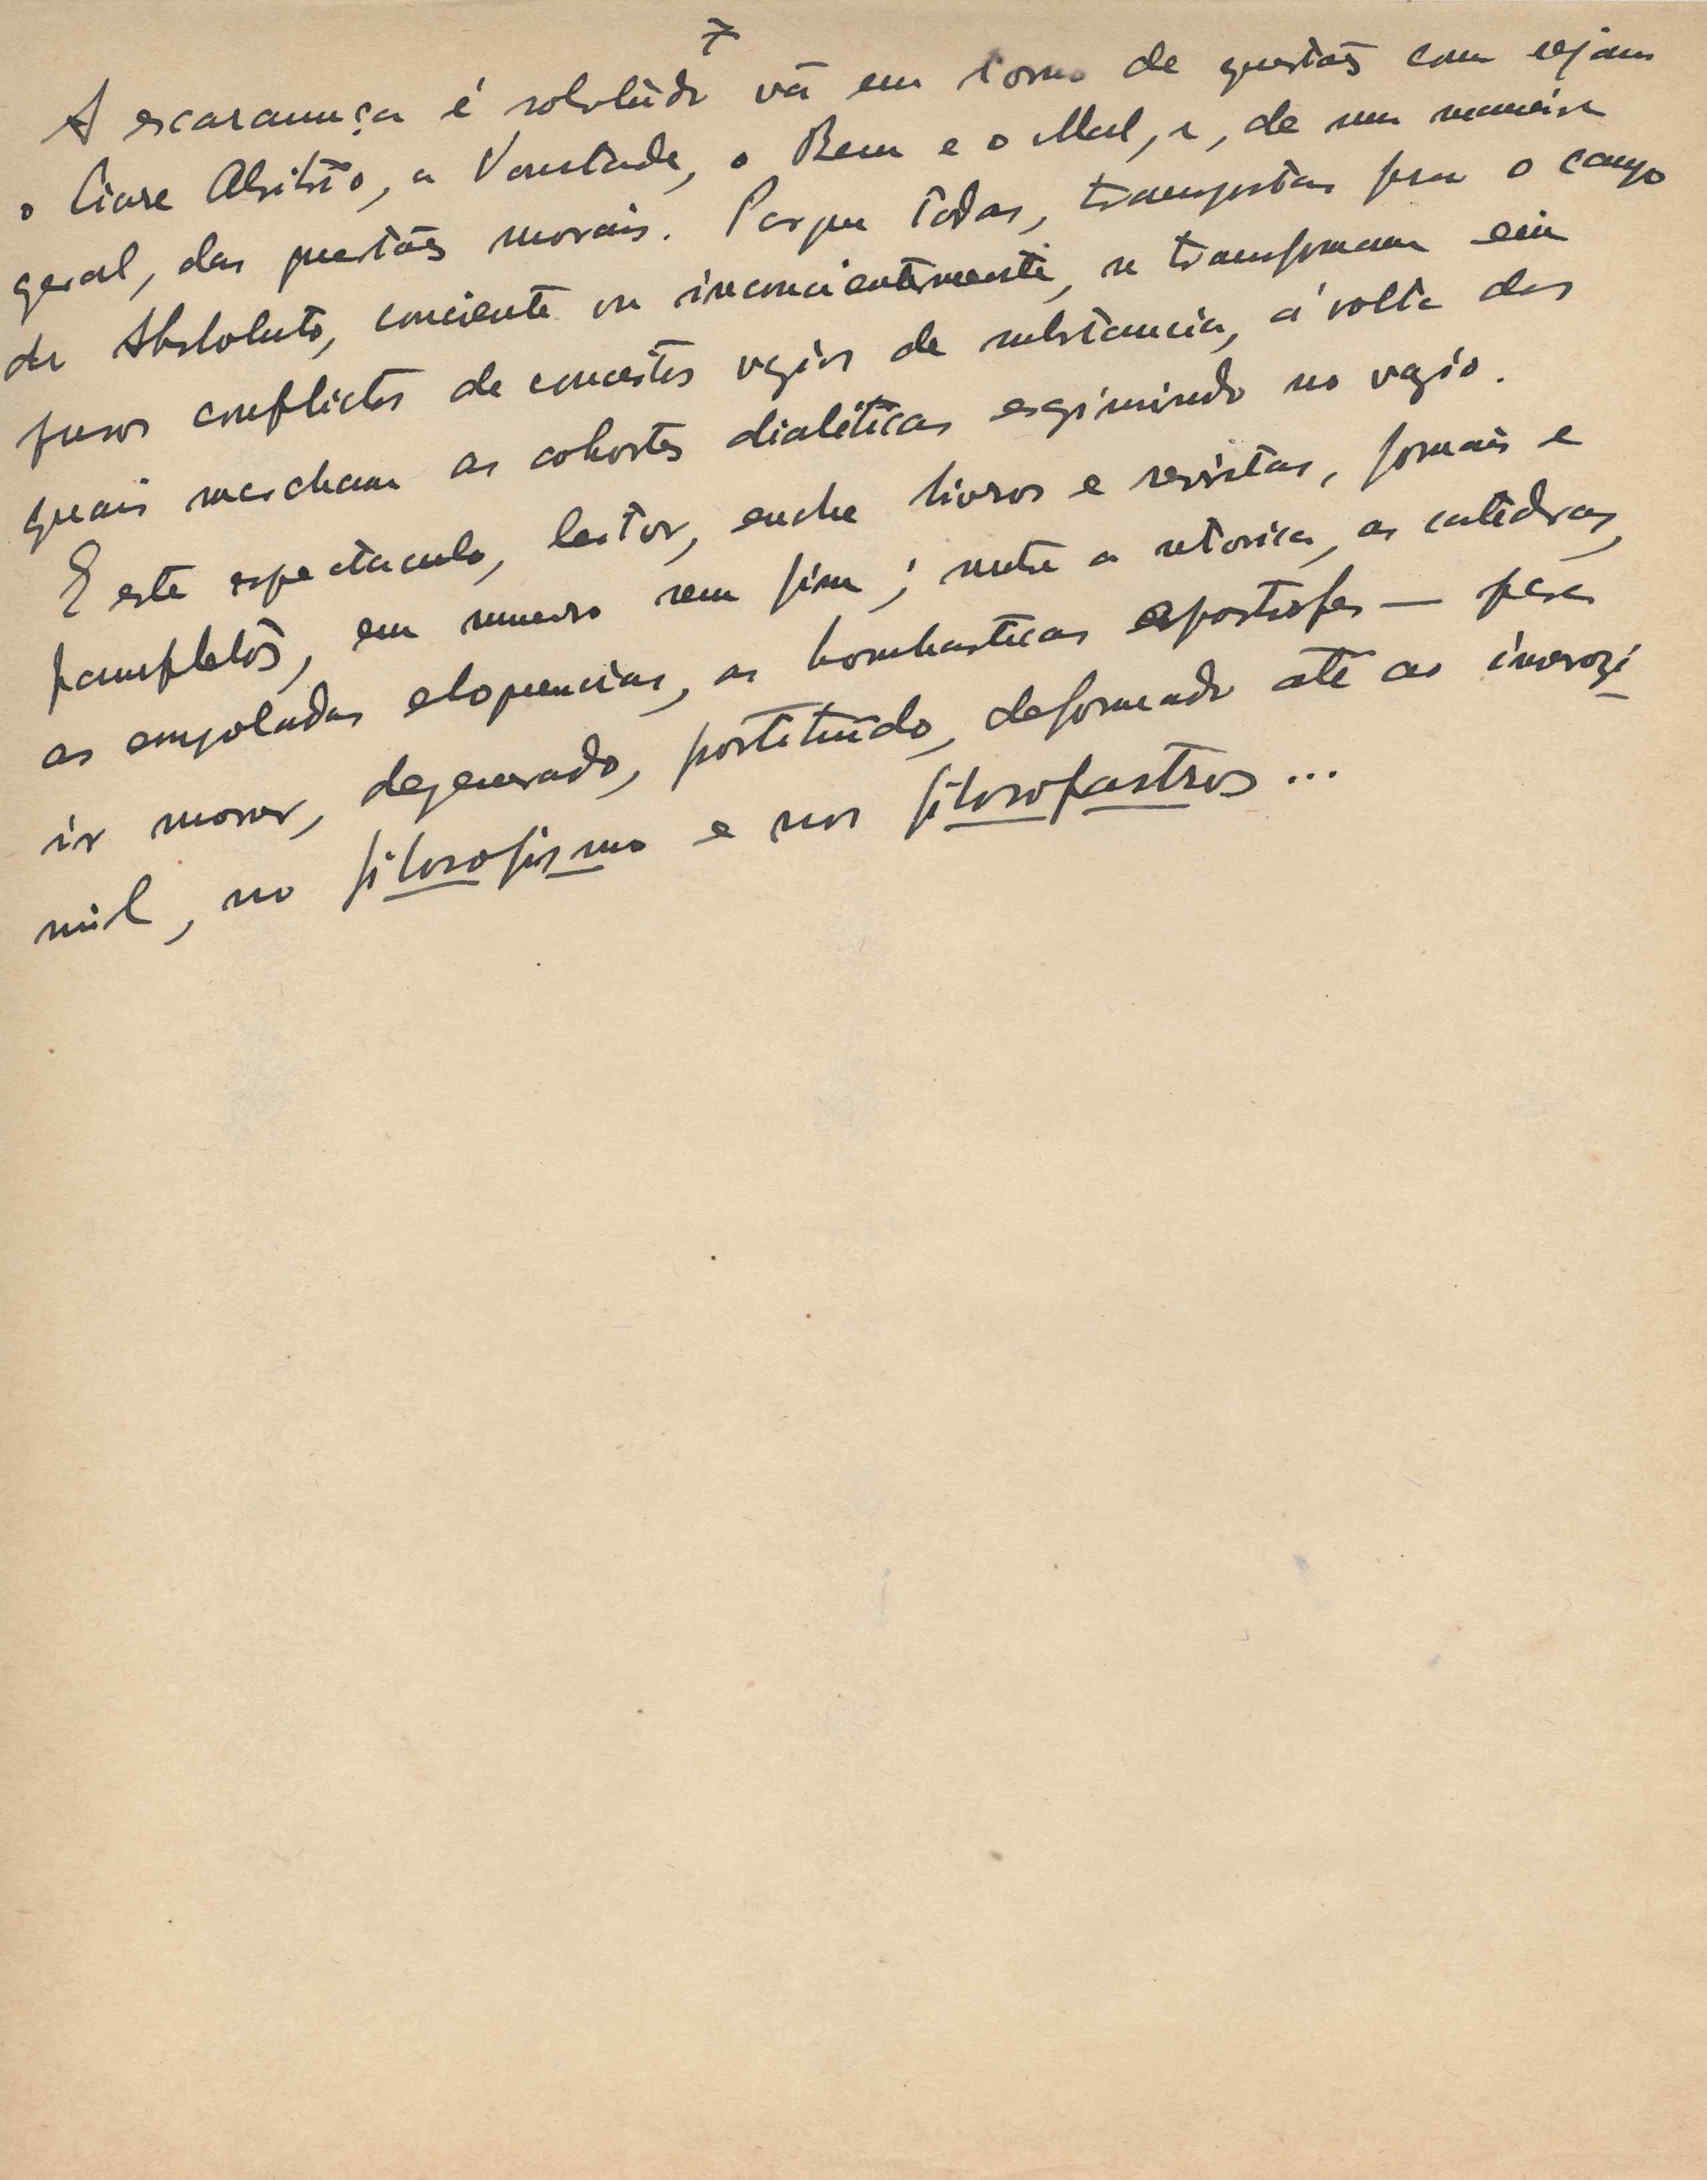 7
A escaramuça é sobretudo vã em torno de questões com sejam
o Livre Arbitrio, a Vontade, o Bem e o Mal, e, de um maneira
geral, das questões morais. Porque todas, transportas para o campo
do Absoluto, conciente ou inconcientemente, se transformam em
puros conflictos de conceitos vazios de substancia, á volta dos
quais marcham as cohortes dialéticas esgrimindo no vazio.
E este espectaculo, leitor, enche livros e revistas, jornais e
panfletos, em numero sem fim; nutre a retorica, as catedras,
as empoladas eloquencias, as bombasticas apostrofes — para
ir morrer, degenerado, prostituido, deformado até ao inverosi-
mil, no filosofismo e nos filosofastros...